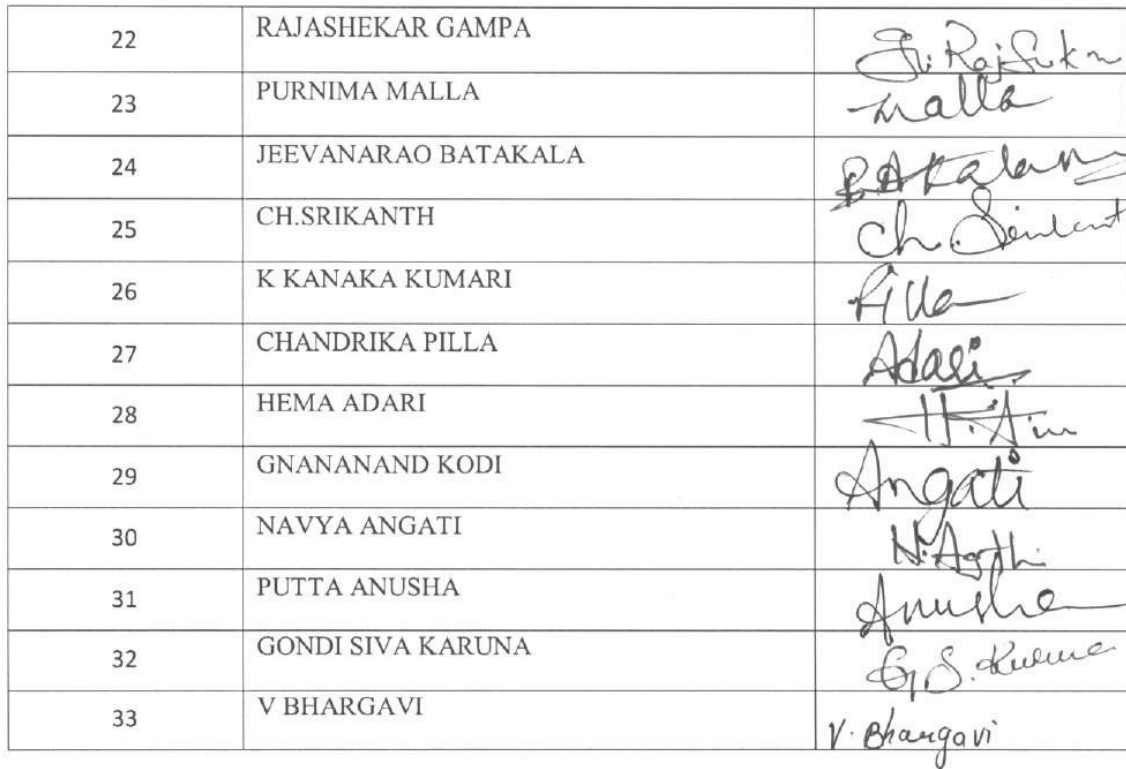 22 RAJASHEKAR GAMPA
23 PURNIMA MALLA malla
24 JEEVANARAO BATAKALA
25 CH.SRIKANTH Ch.
26 K KANAKA KUMARI Pilla
27 CHANDRIKA PILLA Adari
28 HEMA ADARI
29 GNANANAND KODI Angati
30 NAVYA ANGATI
31 PUTTA ANUSHA Anusha
32 GONDI SIVA KARUNA G S.
33 V BHARGAVI V. Bhargavi